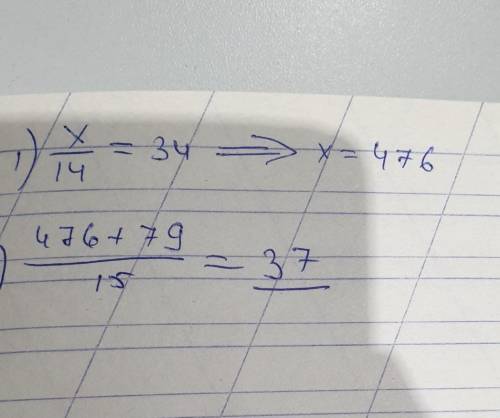 1) x/14 = 34 ⟹ x = 476
) 476 + 79/15 = 37